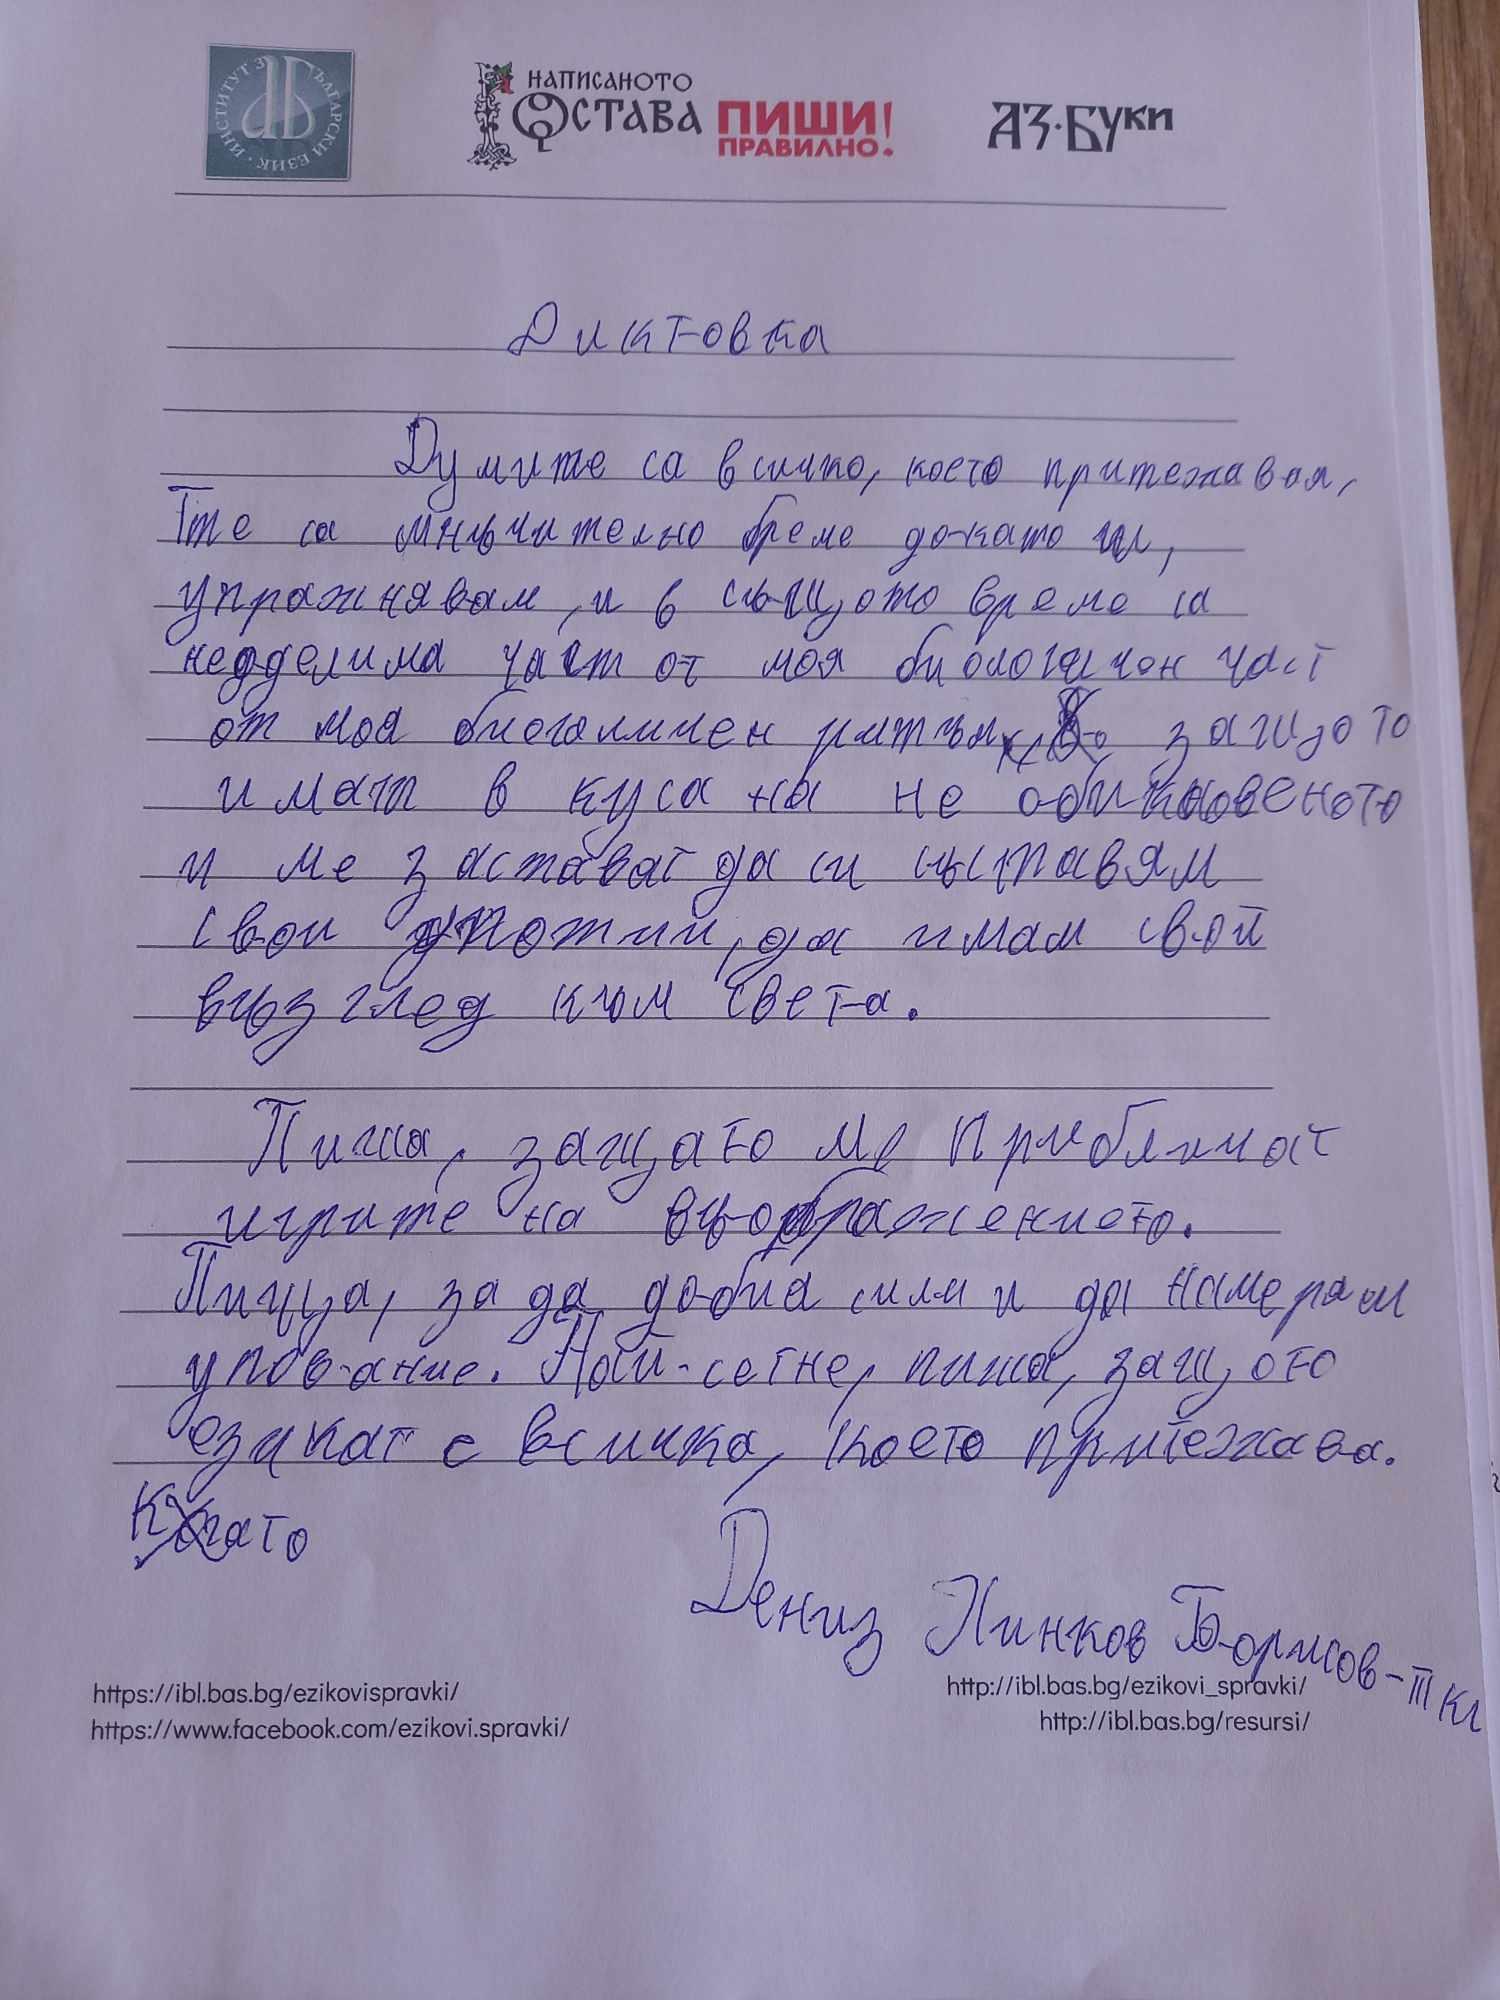 ИНСТИТУТ ЗА БЪЛГАРСКИ ЕЗИК
НАПИСАНОТО ОСТАВА ПИШИ ПРАВИЛНО! АЗ·БУКИ
Диктовка
Думите са всичко, което притежавам,
Тте са мнъчително бреме докато ги,
упражнявам, и в същото време са
неделима част от моя биологичен част
от моя биогаличен ритъм, защото
имат в куса на не обикновеното
и ме застават да си съставям
свои, да имам свой
възглед към света.
Пиша, защато ме приближат
игрите на въображението.
Пиша, за да добиа сили и да намерам
упование. Най-сетне, пиша, защото
езикат е всичка, което притежава.
Когато
Дениз Минков Борисов-III кл
https://ibl.bas.bg/ezikovispravki/ http://ibl.bas.bg/ezikovi_spravki/
https://www.facebook.com/ezikovi.spravki/ http://ibl.bas.bg/resursi/